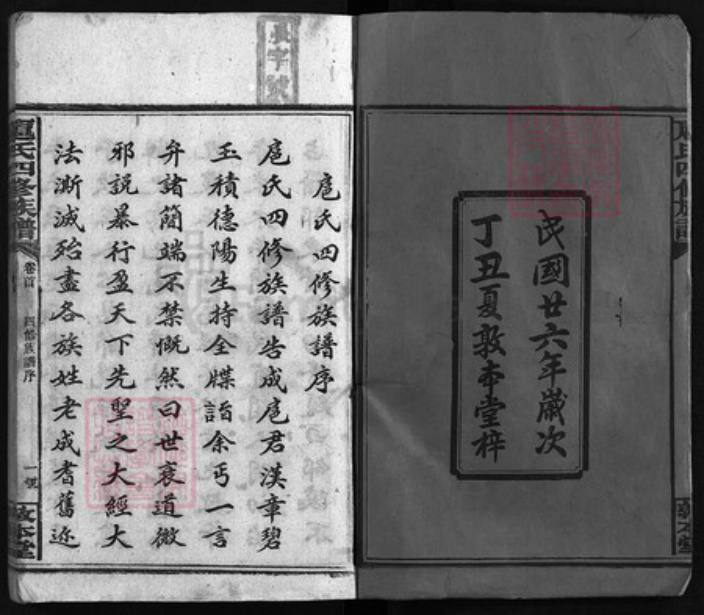 民國廿六年歲次
丁丑夏敦本堂梓
敦本堂
扈氏四修族譜序
扈氏四修族譜告成扈君漢章碧
玉積德陽生持全牒詣余丐一言
弁諸簡端不禁慨然曰世衰道微
邪說暴行盈天下先聖之大經大
法澌滅殆盡各族姓老成耆舊迩
扈氏四修族譜
卷首
四修族譜序
一號
敦本堂